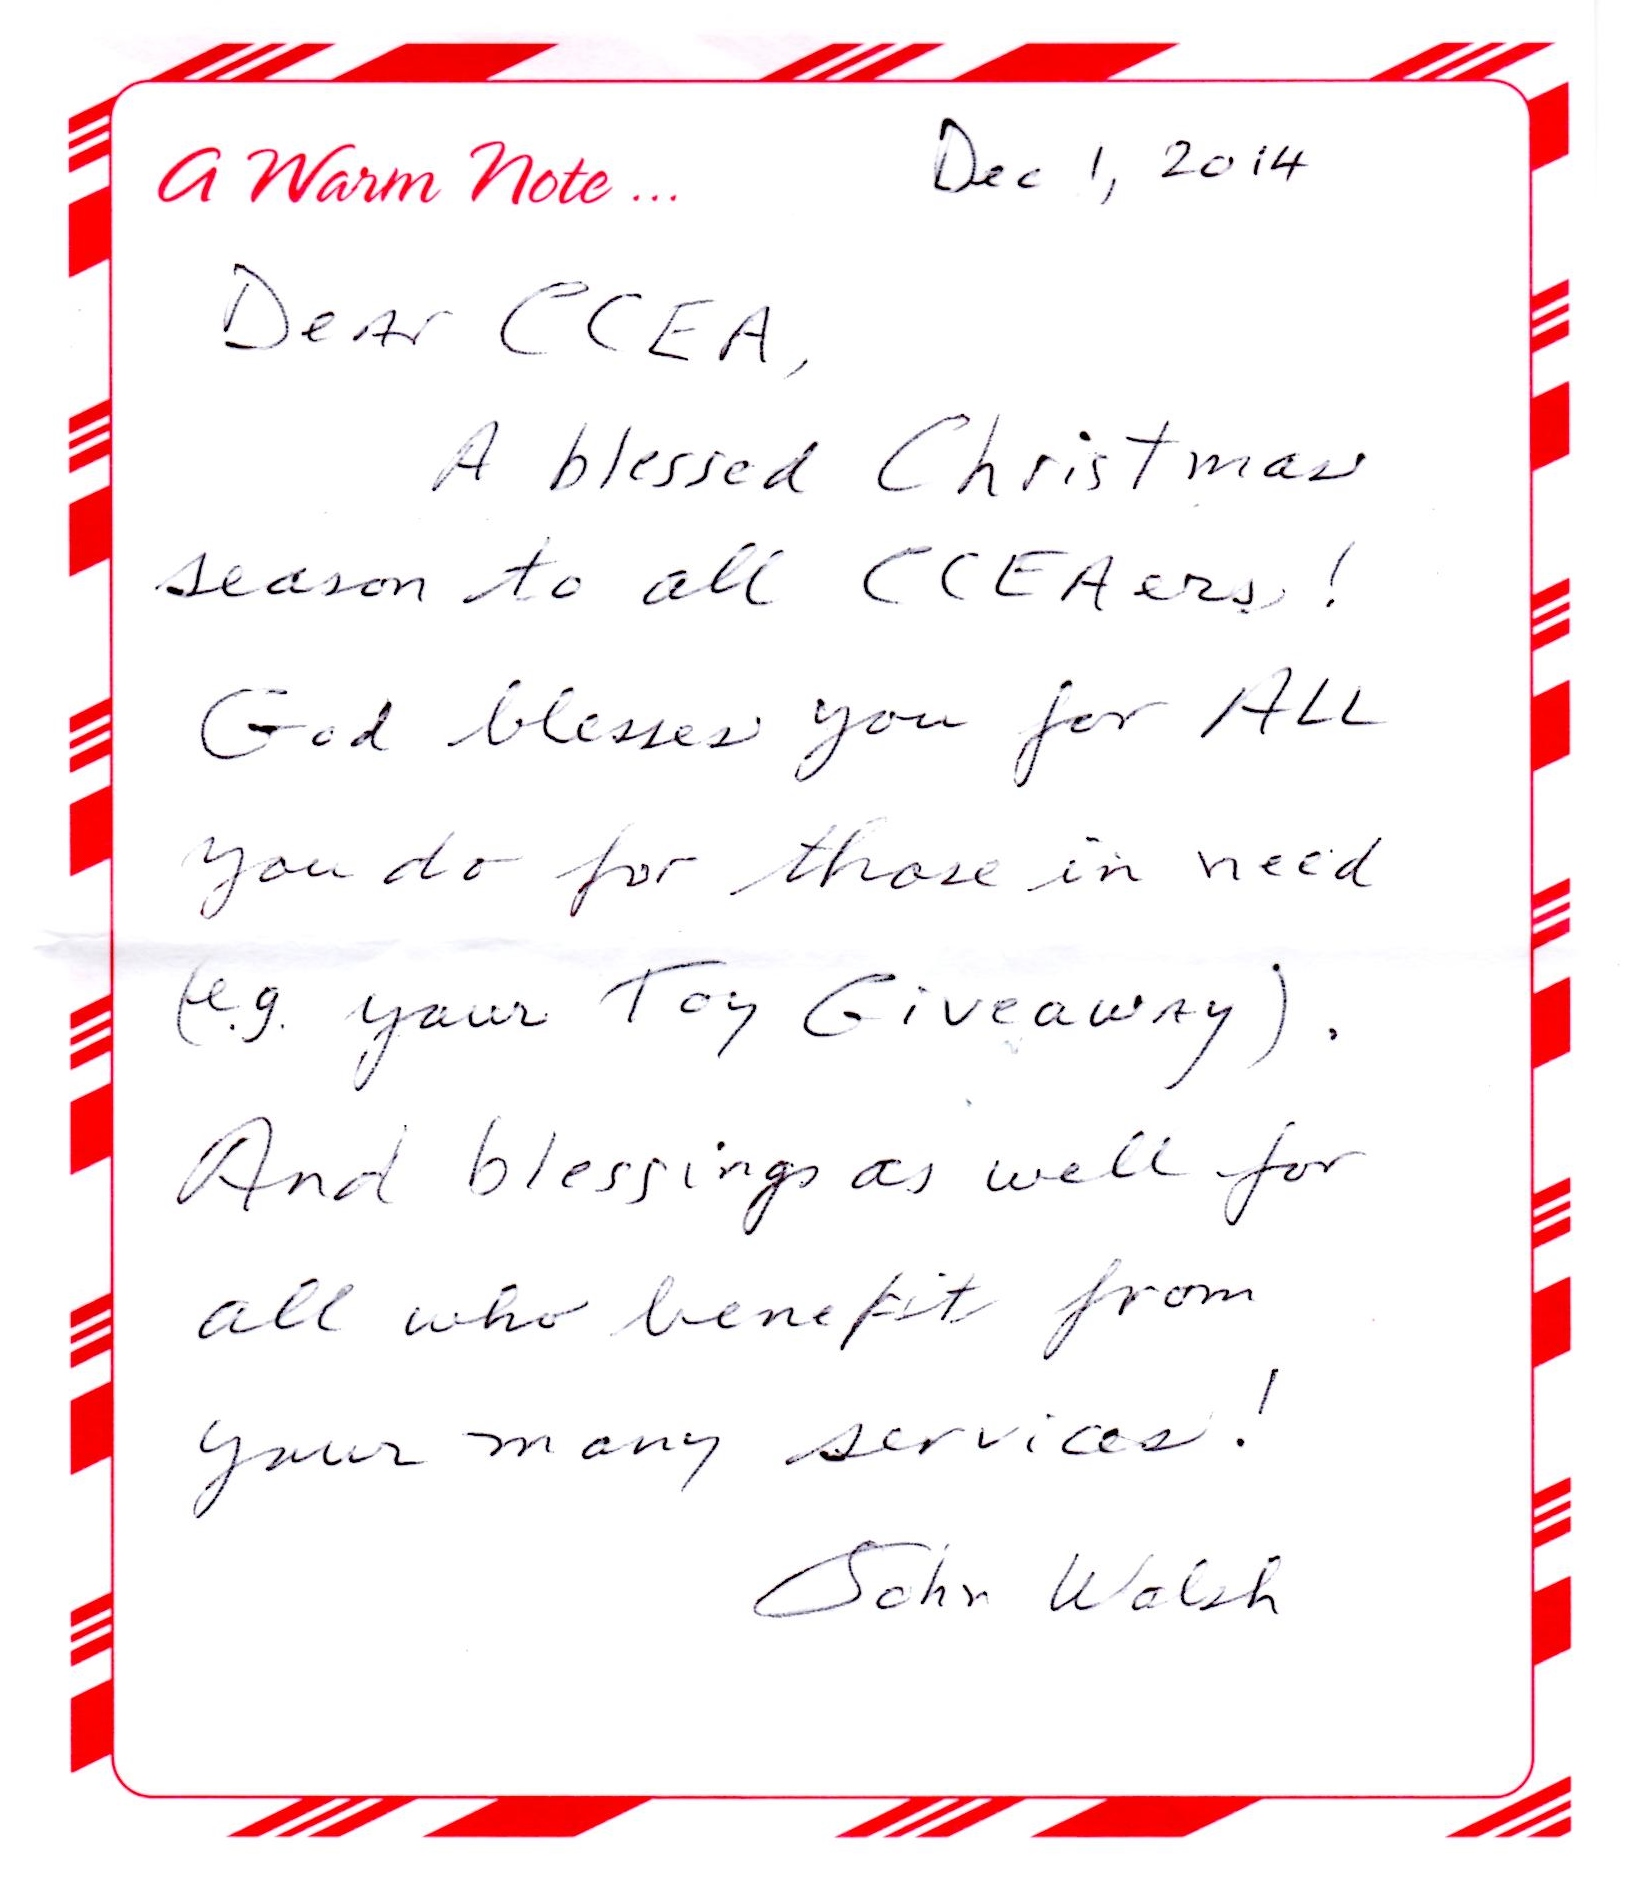 A Warm Note ... Dec 1, 2014
Dear CCEA,
A blessed Christmas
season to all CCEAers!
God blesses you for ALL
you do for those in need
(e.g. your Toy Giveaway).
And blessings as well for
all who benefit from
your many services!
John Walsh